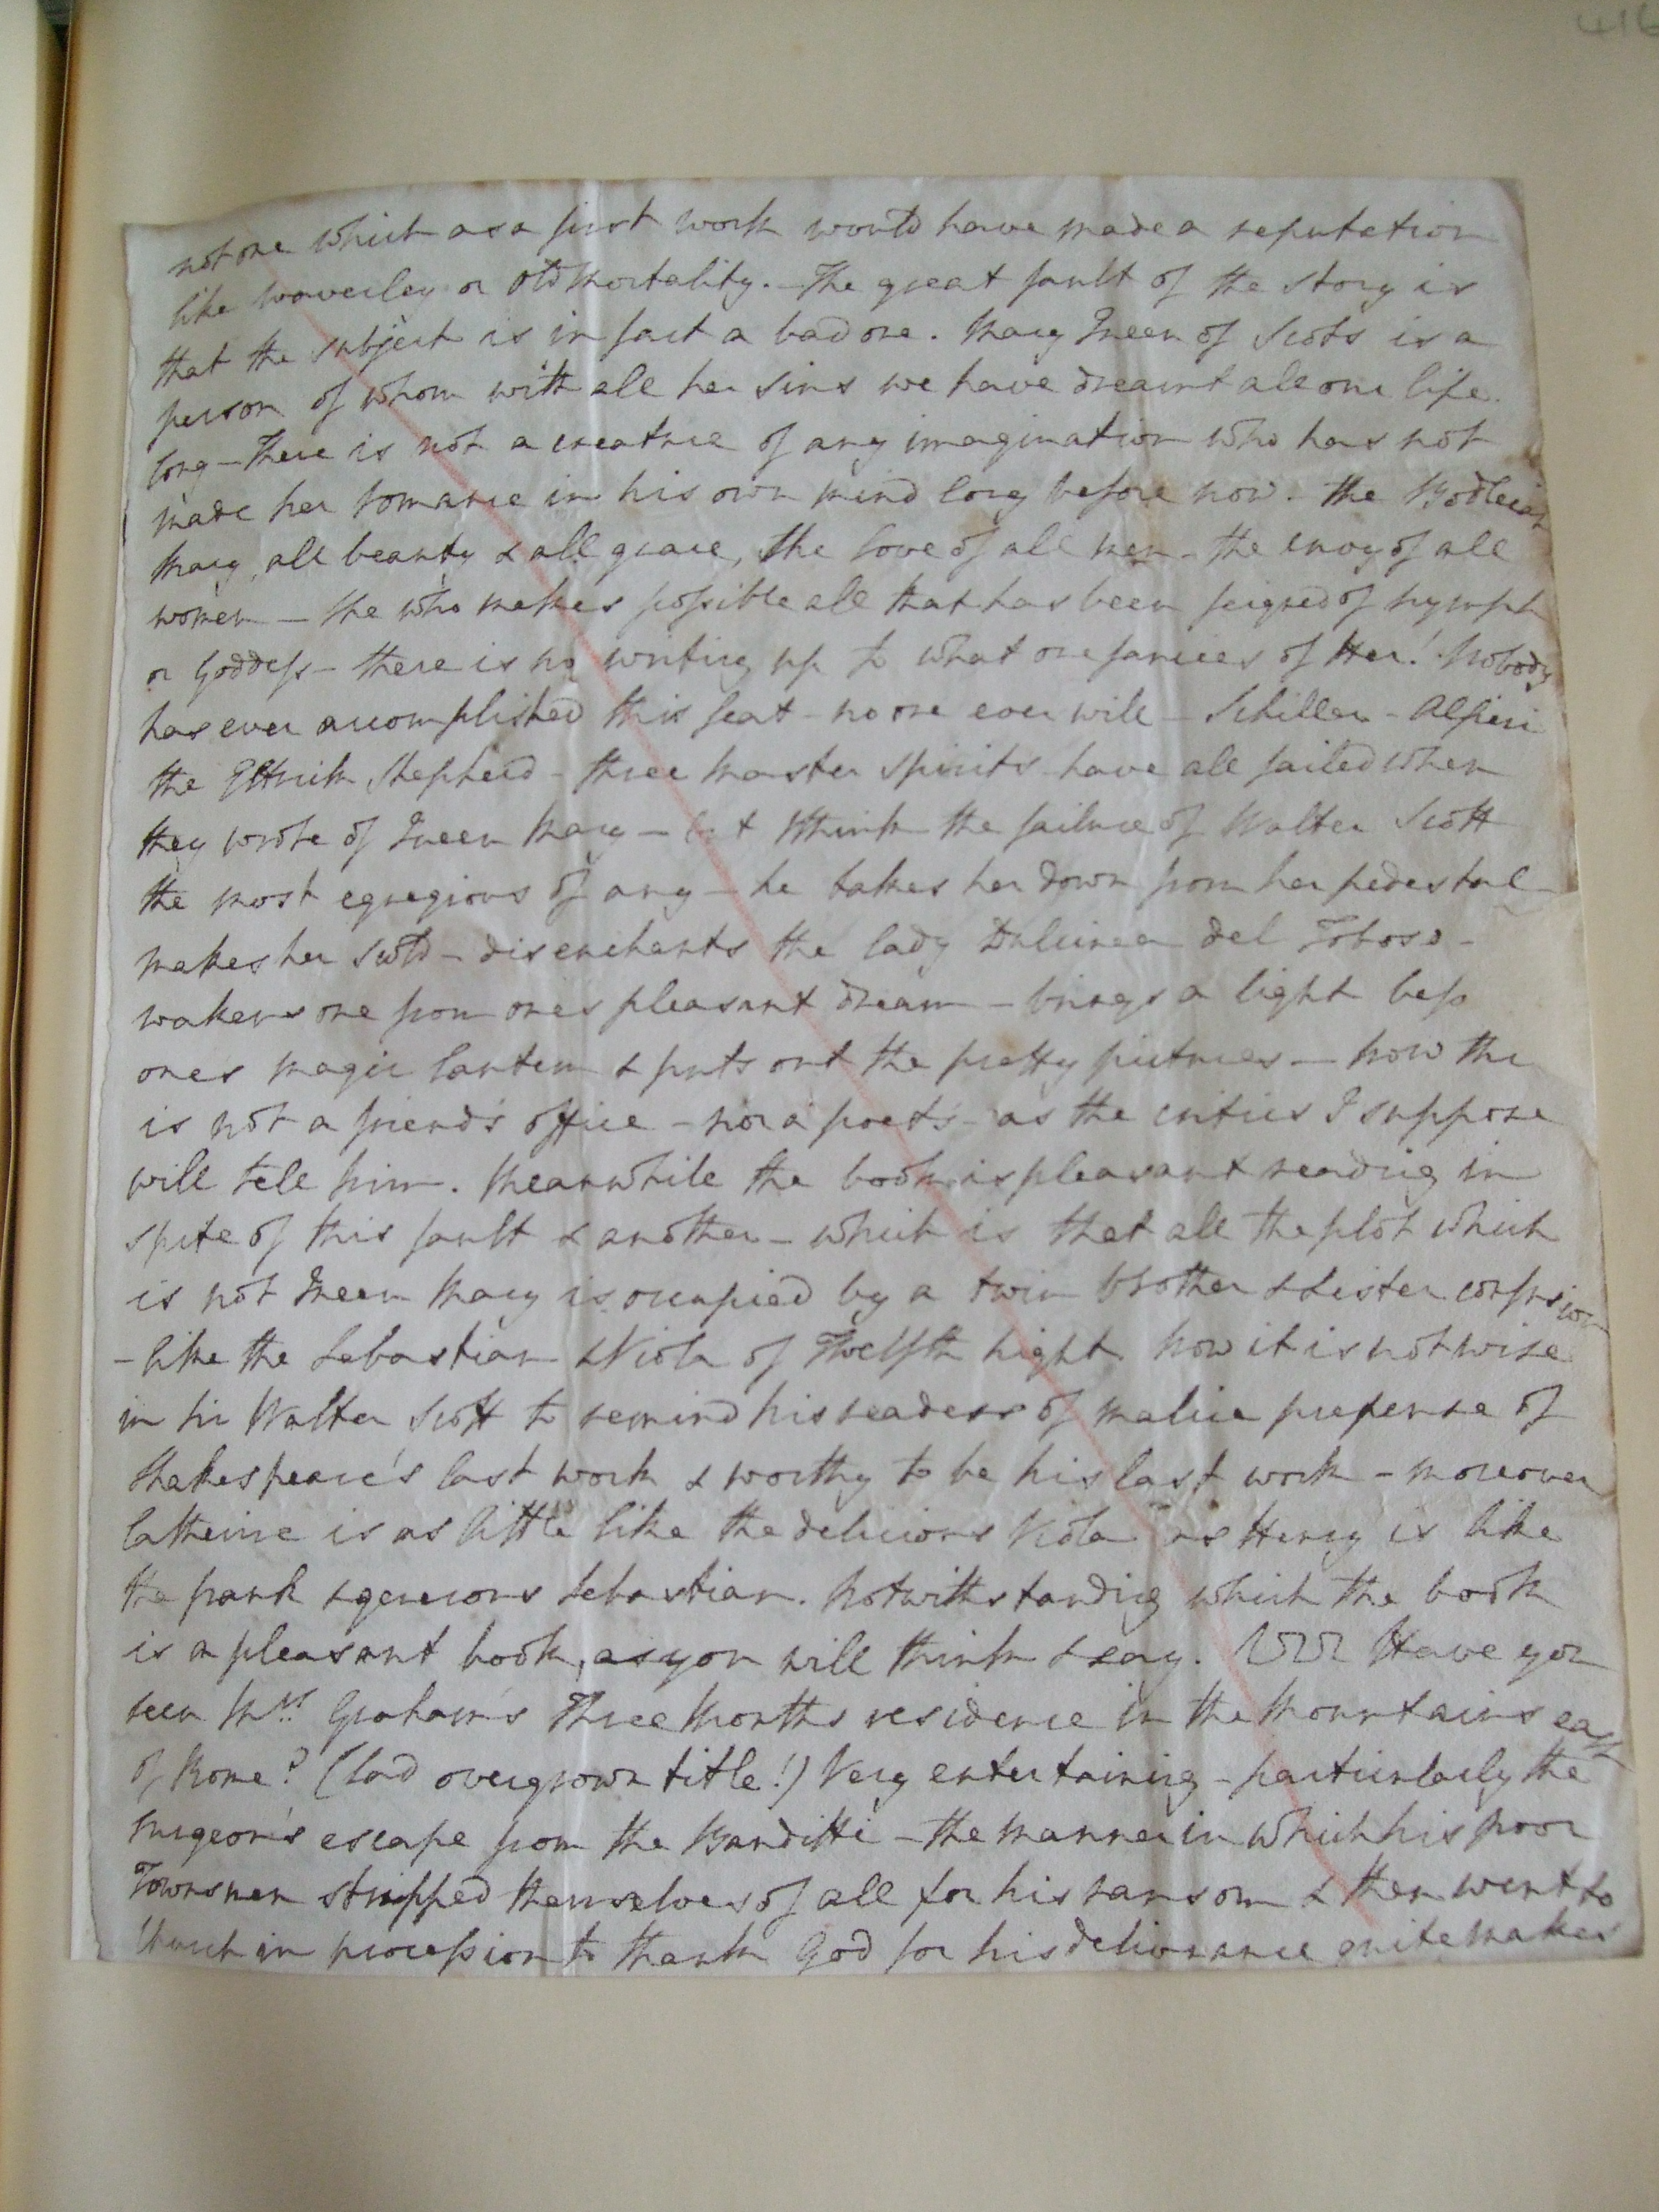 416
not one which as a first work would have made a reputation
like Waverley or Old Mortality. - The great fault of the story is
that the subject is in fact a bad one. Mary Queen of Scots is a
person of whom with all her sins we have dreamt all our life
long - There is not a creature of any imagination who has not
made her romance in his own mind long before now. The Bodleian
Mary, all beauty & all grace, the love of all men - the envy of all
women - she who makes possible all that has been feigned of nymph
or Goddess - there is no writing up to what one fancies of Her! Nobody
has ever accomplished this feat - no one ever will - Schiller - Alfieri
the Ettrick Shepherd - three master spirits have all failed when
they wrote of Queen Mary - but I think the failure of Walter Scott
the most egregious of any - he takes her down from her pedestal -
makes her scold - disenchants the lady Dulcinea del Toboso -
wakens one from ones pleasant dream - brings a light befo
ones magic lantern & puts out the pretty pictures - Now thi
is not a friend's office - nor a poet's - as the critics I suppose
will tell him. Meanwhile the book is pleasant reading in
spite of this fault & another - which is that all the plot which
is not Queen Mary is occupied by a twin brother & sister confusion
- like the Sebastian & Viola of Twelfth Night. Now it is not wise
in Sir Walter Scott to remind his readers of malice prepense of
Shakespeare's last work & worthy to be his last work - moreover
Catherine is as little like the delicious Viola as Henry is like
the frank & generous Sebastian. Notwithstanding which the book
is a pleasant book, as you will think & say. Have you
seen Mrs. Graham's Three Months residence in the Mountains east
of Rome? (Bad overgrown title!) Very entertaining - particularly the
Surgeon's escape from the Banditti - the manner in which his poor
Townsmen stripped themselves of all for his ransom & then went to
Church in procession to thank God for his deliverance quite makes